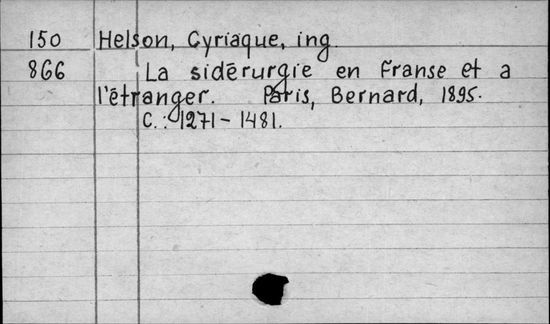 150 Helson, Cyriaque, ing.
866 La sidérurgie en Franse et a
l'étranger. Paris, Bernard, 1895.
C.: 1271-1481.